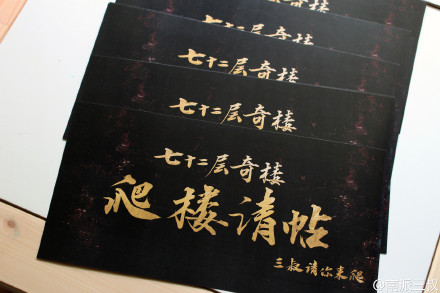 七十二层奇楼
七十二层奇楼
七十二层奇楼
七十二层奇楼
爬楼请帖
三叔请你来爬
@南派三叔